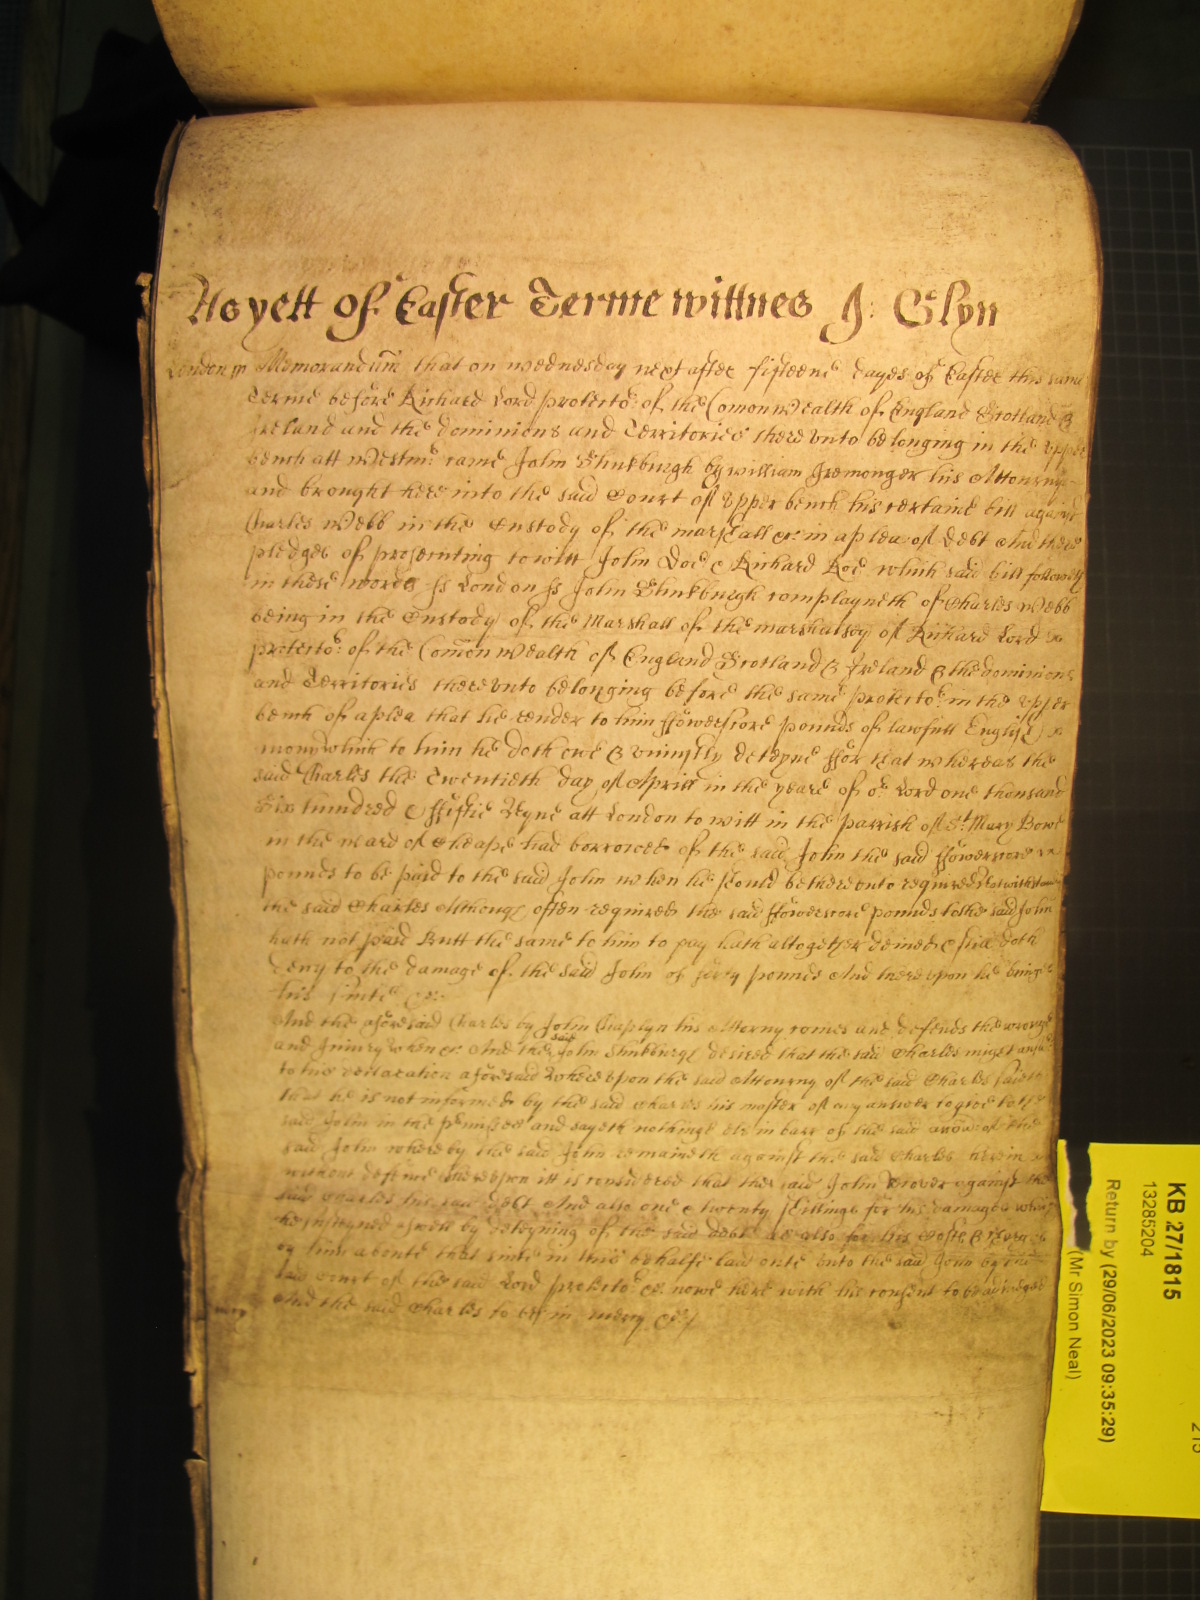 As yett of Easter Terme wittnes J: Glyn
London ss Memorandum that on wednesday next after fifteene dayes of Easter this same
Terme before Richard Lord protector of the Comonwealth of England Scotland &
Ireland and the dominions and Territories there unto belonging in the upper
bench att Westmr came John Stinkburgh by william Iremonger his Attorney
and brought here into the said Court of Upper bench his certaine bill against
Charles Webb in the Custody of the marshall &c in a plea of Debt And there
pledges of prosecuting to witt John Doe & Richard Roe which said bill followeth
in these words ss London ss John Stinkburgh complayneth of Charles Webb
being in the Custody of the Marshall of the marshalsey of Richard Lord
protector of the Comon wealth of England Scotland & Ireland & the dominions
and Territories there unto belonging before the same protector in the upper
bench of a plea that he render to him ffowerscore pounds of lawfull English
mony which to him he doth owe & uniustly detayne ffor that whereas the
said Charles the Twentieth day of Aprill in the yeare of or Lord one thousand
Six hundred & ffiftie Nyne att London to witt in the parrish of St Mary Bowe
in the ward of Cheape had borrowed of the said John the said ffowerscore
pounds to be paid to the said John when he should be thereunto required Notwithstanding
the said Charles Although often required the said ffowerscore pounds to the said John
hath not paid Butt the same to him to pay hath altogether denied & still doth
deny to the damage of the said John of forty pounds And thereupon he brings
his suite &c
And the aforesaid Charles by John Chaplyn his Attorny comes and defends the wronge
and Iniury when &c And the said John Stinkburgh desired that the said Charles might answer
to his declaration aforesaid Whereupon the said Attourny of the said Charles saieth
that he is not informed by the said Charles his master of any answer to give to the
said John in the premisses and sayeth nothinge els in barr of the said accon of the
said John whereby the said John remaineth against the said Charles herein
without defence Thereupon itt is considered that the said John recover against the
said Charles his said debt And also one & twenty shillings for his damages which
he susteyned aswell by deteyning of the said debt as also for his Costs &
by him aboute that suite in this behalfe laid oute unto the said John by the
said court of the said Lord protector &c nowe here with his consent to be adiudged
mercy And the said Charles to be in mercy &c
KB 27/1815
13285204
Return by (29/06/2023 09:35:29)
(Mr Simon Neal)